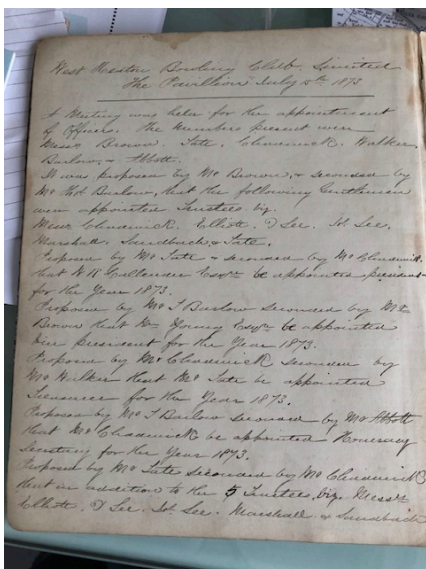 West Heaton Bowling Club. Limited
The Pavillion July 5th 1873
A Meeting was held for the appointment
of Officers. The members present were
Messrs Brown. Tate. Chadwick. Walker.
Barlow, & Abbott.
It was proposed by Mr Brown, & seconded by
Mr Thos Barlow, that the following Gentlemen
were appointed Trustees viz.
Messrs Chadwick. Elliott. Lee. Lee.
Marshall. Sandbach & Tate.
Proposed by Mr Tate & seconded by Mr Chadwick
that W R Callender Esqre be appointed president
for the Year 1873.
Proposed by Mr T Barlow seconded by Mr
Brown that Wm Young Esqre be appointed
Vice president for the Year 1873.
Proposed by Mr Chadwick seconded by
Mr Walker that Mr Tate be appointed
Treasurer for the Year 1873.
Proposed by Mr T Barlow seconded by Mr Abbott
that Mr Chadwick be appointed Honerary
Secretary for the Year 1873.
Proposed by Mr Tate seconded by Mr Chadwick
that in addition to the 5 Trustees viz. Messrs
Elliott. Lee. Lee. Marshall & Sandbach